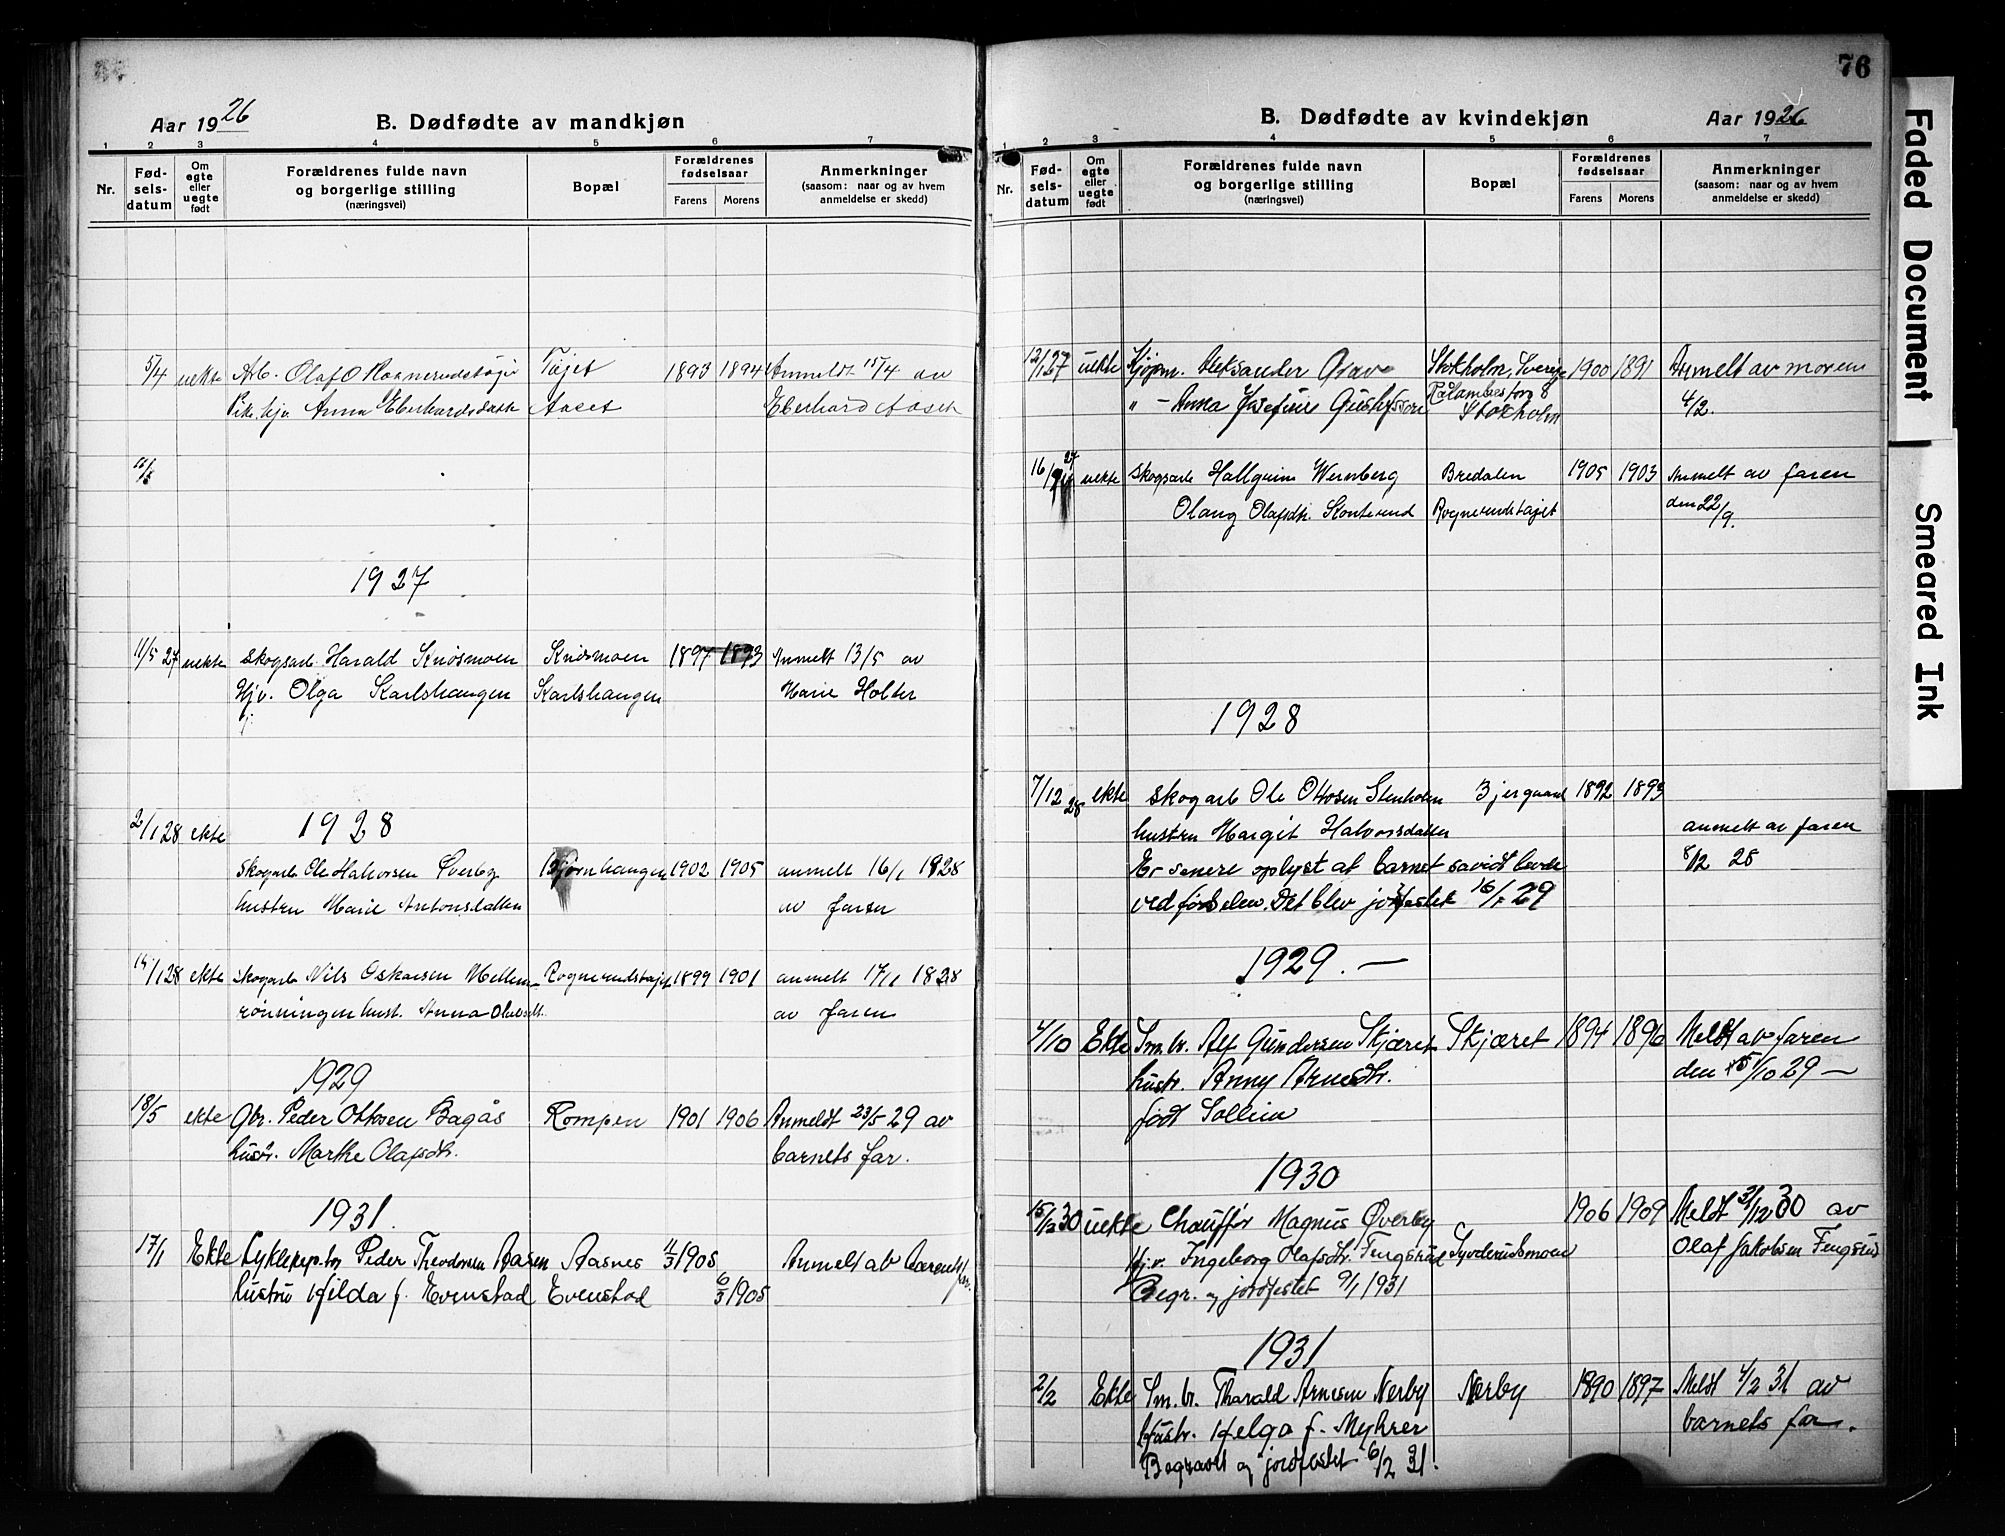 76
Aar 1926
B. Dødfødte av mandkjøn
1 2 3 4 5 6 7
Nr.
Fød-
sels-
datum
Om
egte
eller
uegte
født
Forældrenes fulde navn
og borgerlige stilling
(næringsvei)
Bopæl
Forældrenes
fødselsaar
Farens Morens
Anmerkninger
(saasom: naar og av hvem
anmeldelse er skedd)
5/4 uekte Arb. Olaf O Tøjet 1893 1894 Anmeldt 15/4 av
Anna Eberhardsdatt Aaset Eberhard Aaset
1927
11/5 27 uekte Skogsarb. Harald Knosmoen Knosmoen 1897 1893 Anmelt 13/5 av
Hj v. Olga Karlshaugen Karlshaugen Marie Holter
2/1 28 ekte 1928
Skogarb Ole Halvorsen Øverby Bjørnhaugen 1902 1905 anmelt 16/1 1928
hustru Marie Antonsdatter av faren
14/1 28 ekte Skogarb Nils Oskarsen Rognerudstøjet 1899 1901 anmelt 17/1 1828
rønningen hust. Anna av faren
1929
18/5 ekte Gbr. Peder Ottosen Bagås Rompen 1901 1906 Anmeldt 23/5 29 av
hustr. Marthe Olafsdtr. barnets far.
1931.
17/1 Ekte Peder Theodorsen Aasen Aasnes 11/3 1905 Anmelt av barnets far.
hustru Hilda f. Evenstad Evenstad 6/3 1905
B. Dødfødte av kvindekjøn
Aar 1926
1 2 3 4 5 6 7
Nr.
Fød-
sels-
datum
Om
egte
eller
uegte
født
Forældrenes fulde navn
og borgerlige stilling
(næringsvei)
Bopæl
Forældrenes
fødselsaar
Farens Morens
Anmerkninger
(saasom: naar og av hvem
anmeldelse er skedd)
12/1 27 uekte Kjøpm. Aleksander Grave Stokholm, Sverige 1900 1891 Anmelt av moren
" - Anna Josefine Gustafsson 8 4/2.
Stokholm
16/9 27 uekte Skogsarb Hallgrim Wernberg Bredalen 1905 1903 Anmelt av faren
Olaug Olafsdtr. Skonterud Rognerudstøjet den 22/9.
1928
7/12 28 ekte Skogarb Ole Ottosen Stenholen Bjergaard 1892 1893
hustru Margit Halvorsdatter anmelt av faren
Er senere oplyst at barnet savidt levde 8/12 28
ved fødselen. Det blev jordfestet 16/1 29
1929. —
4/10 Ekte Sm. br. Alf Gundersen Skjæret Skjæret 1894 1896 Meldt av faren
hustr. Anny Arnesdtr. den 15/10 29 —
født Sollien
1930
15/12 30 uekte Chauffør Magnus Øverby 1906 1909 Meldt 31/12 30 av
Hj.v. Ingeborg Olafsdtr. Fingsrud Syvderudsmoen Olaf Jakobsen Fingsrud
Begr. og jordfestet 9/1 1931
1931
2/2 Ekte Sm. br. Tharald Arnesen Nerby Nerby 1890 1897 Meldt 4/2 31 av
Hustr. Helga f. Myhrer barnets far.
Begravet og jordfestet 6/2 31.
Faded Document
Smeared Ink